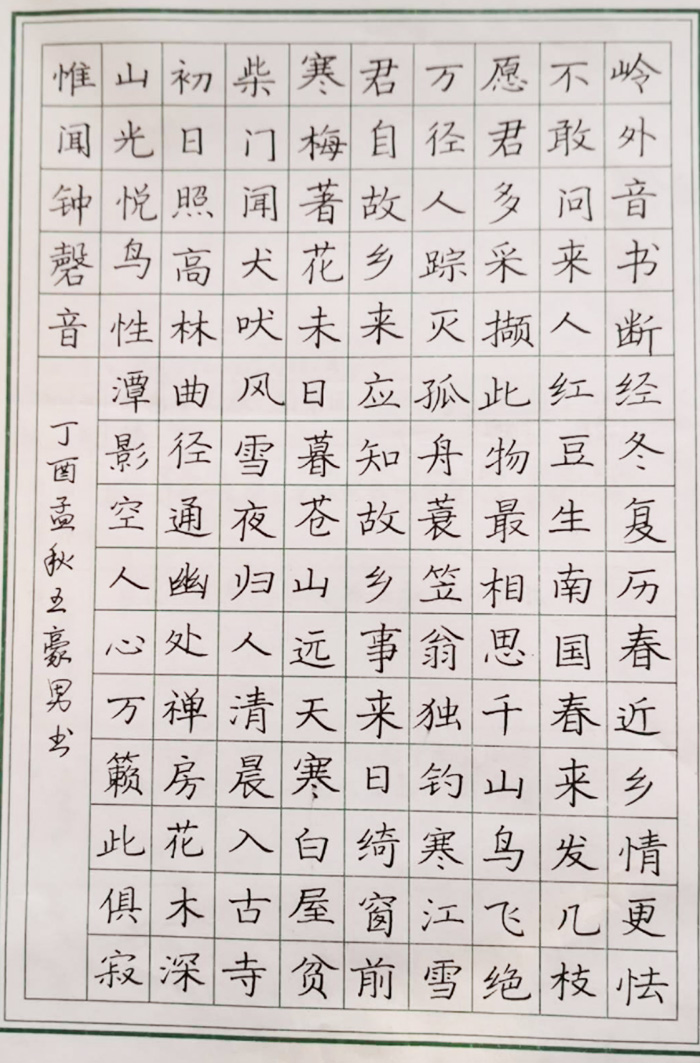 岭外音书断经冬复历春近乡情更怯
不敢问来人红豆生南国春来发几枝
愿君多采撷此物最相思千山鸟飞绝
万径人踪灭孤舟蓑笠翁独钓寒江雪
君自故乡来应知故乡事来日绮窗前
寒梅著花未日暮苍山远天寒白屋贫
柴门闻犬吠风雪夜归人清晨入古寺
初日照高林曲径通幽处禅房花木深
山光悦鸟性潭影空人心万籁此俱寂
惟闻钟磬音
丁酉孟秋王豪男书